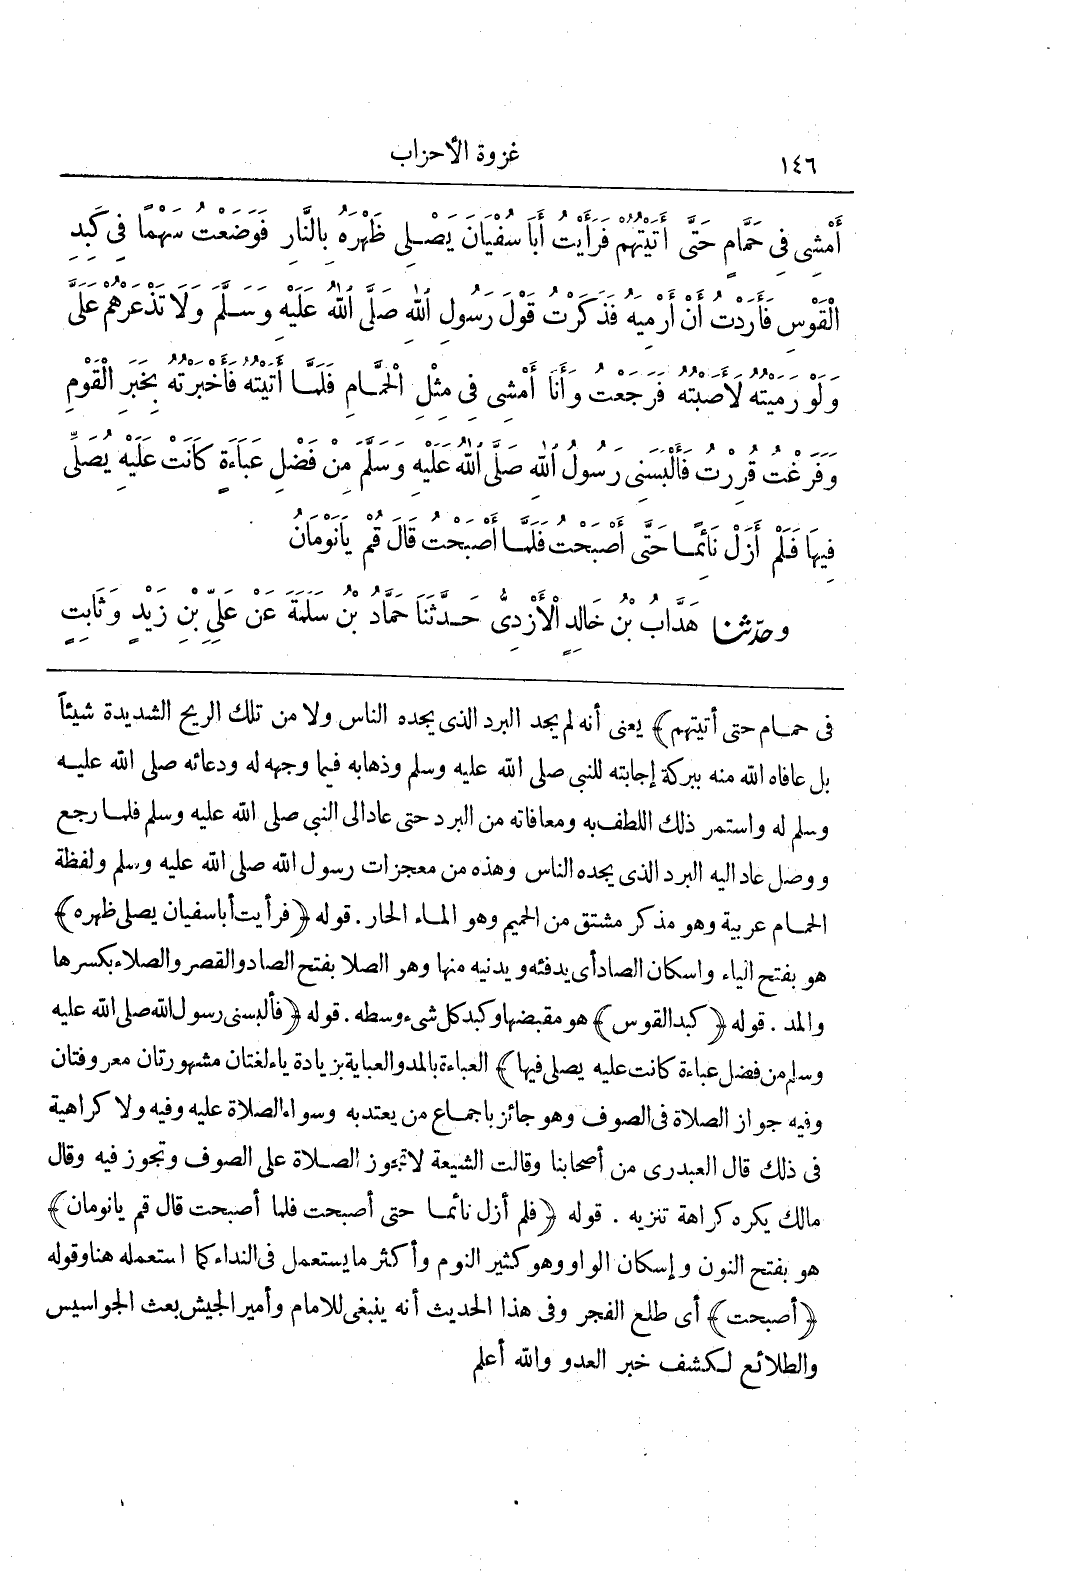 ١٤٦ غزوة الأحزاب
أَمْشِي فِي حَمَّامٍ حَتَّى أَتَيْتُهُمْ فَرَأَيْتُ أَبَا سُفْيَانَ يَصْلِي ظَهْرَهُ بِالنَّارِ فَوَضَعْتُ سَهْمًا فِي كَبِدِ
الْقَوْسِ فَأَرَدْتُ أَنْ أَرْمِيَهُ فَذَكَرْتُ قَوْلَ رَسُولِ اللهِ صَلَّى اللهُ عَلَيْهِ وَسَلَّمَ وَلَا تَذْعَرْهُمْ عَلَيَّ
وَلَوْ رَمَيْتُهُ لَأَصَبْتُهُ فَرَجَعْتُ وَأَنَا أَمْشِي فِي مِثْلِ الْحَمَّامِ فَلَمَّا أَتَيْتُهُ فَأَخْبَرْتُهُ بِخَبَرِ الْقَوْمِ
وَفَرَغْتُ قُرِرْتُ فَأَلْبَسَنِي رَسُولُ اللهِ صَلَّى اللهُ عَلَيْهِ وَسَلَّمَ مِنْ فَضْلِ عَبَاءَةٍ كَانَتْ عَلَيْهِ يُصَلِّي
فِيهَا فَلَمْ أَزَلْ نَائِمًا حَتَّى أَصْبَحْتُ فَلَمَّا أَصْبَحْتُ قَالَ قُمْ يَانَوْمَانُ
وحدثنا هَدَّابُ بْنُ خَالِدٍ الْأَزْدِيُّ حَدَّثَنَا حَمَّادُ بْنُ سَلَمَةَ عَنْ عَلِيِّ بْنِ زَيْدٍ وَثَابِتٍ
فى حمام حتى أتيتهم﴾ يعنى أنه لم يجد البرد الذى يجده الناس ولا من تلك الريح الشديدة شيئاً
بل عافاه الله منه ببركة إجابته للنبى صلى الله عليه وسلم وذهابه فيما وجهه له ودعائه صلى الله عليه
وسلم له واستمر ذلك اللطف به ومعافاته من البرد حتى عاد الى النبى صلى الله عليه وسلم فلما رجع
ووصل عاد اليه البرد الذى يجده الناس وهذه من معجزات رسول الله صلى الله عليه وسلم ولفظة
الحمام عربية وهو مذكر مشتق من الحميم وهو الماء الحار . قوله ﴿فرأيت أبا سفيان يصلى ظهره﴾
هو بفتح الياء واسكان الصاد أى يدفئه ويدنيه منها وهو الصلا بفتح الصاد والقصر والصلاء بكسرها
والمد . قوله ﴿كبد القوس﴾ هو مقبضها وكبد كل شىء وسطه . قوله ﴿فألبسنى رسول الله صلى الله عليه
وسلم من فضل عباءة كانت عليه يصلى فيها﴾ العباءة بالمد والعباية بزيادة ياء لغتان مشهورتان معروفتان
وفيه جواز الصلاة فى الصوف وهو جائز باجماع من يعتد به وسواء الصلاة عليه وفيه ولا كراهية
فى ذلك قال العبدرى من أصحابنا وقالت الشيعة لا تجوز الصلاة على الصوف وتجوز فيه وقال
مالك يكره كراهة تنزيه . قوله ﴿فلم أزل نائما حتى أصبحت فلما أصبحت قال قم يانومان﴾
هو بفتح النون وإسكان الواو وهو كثير النوم وأكثر ما يستعمل فى النداء كما استعمله هنا وقوله
﴿أصبحت﴾ أى طلع الفجر وفى هذا الحديث أنه ينبغى للامام وأمير الجيش بعث الجواسيس
والطلائع لكشف خبر العدو والله أعلم